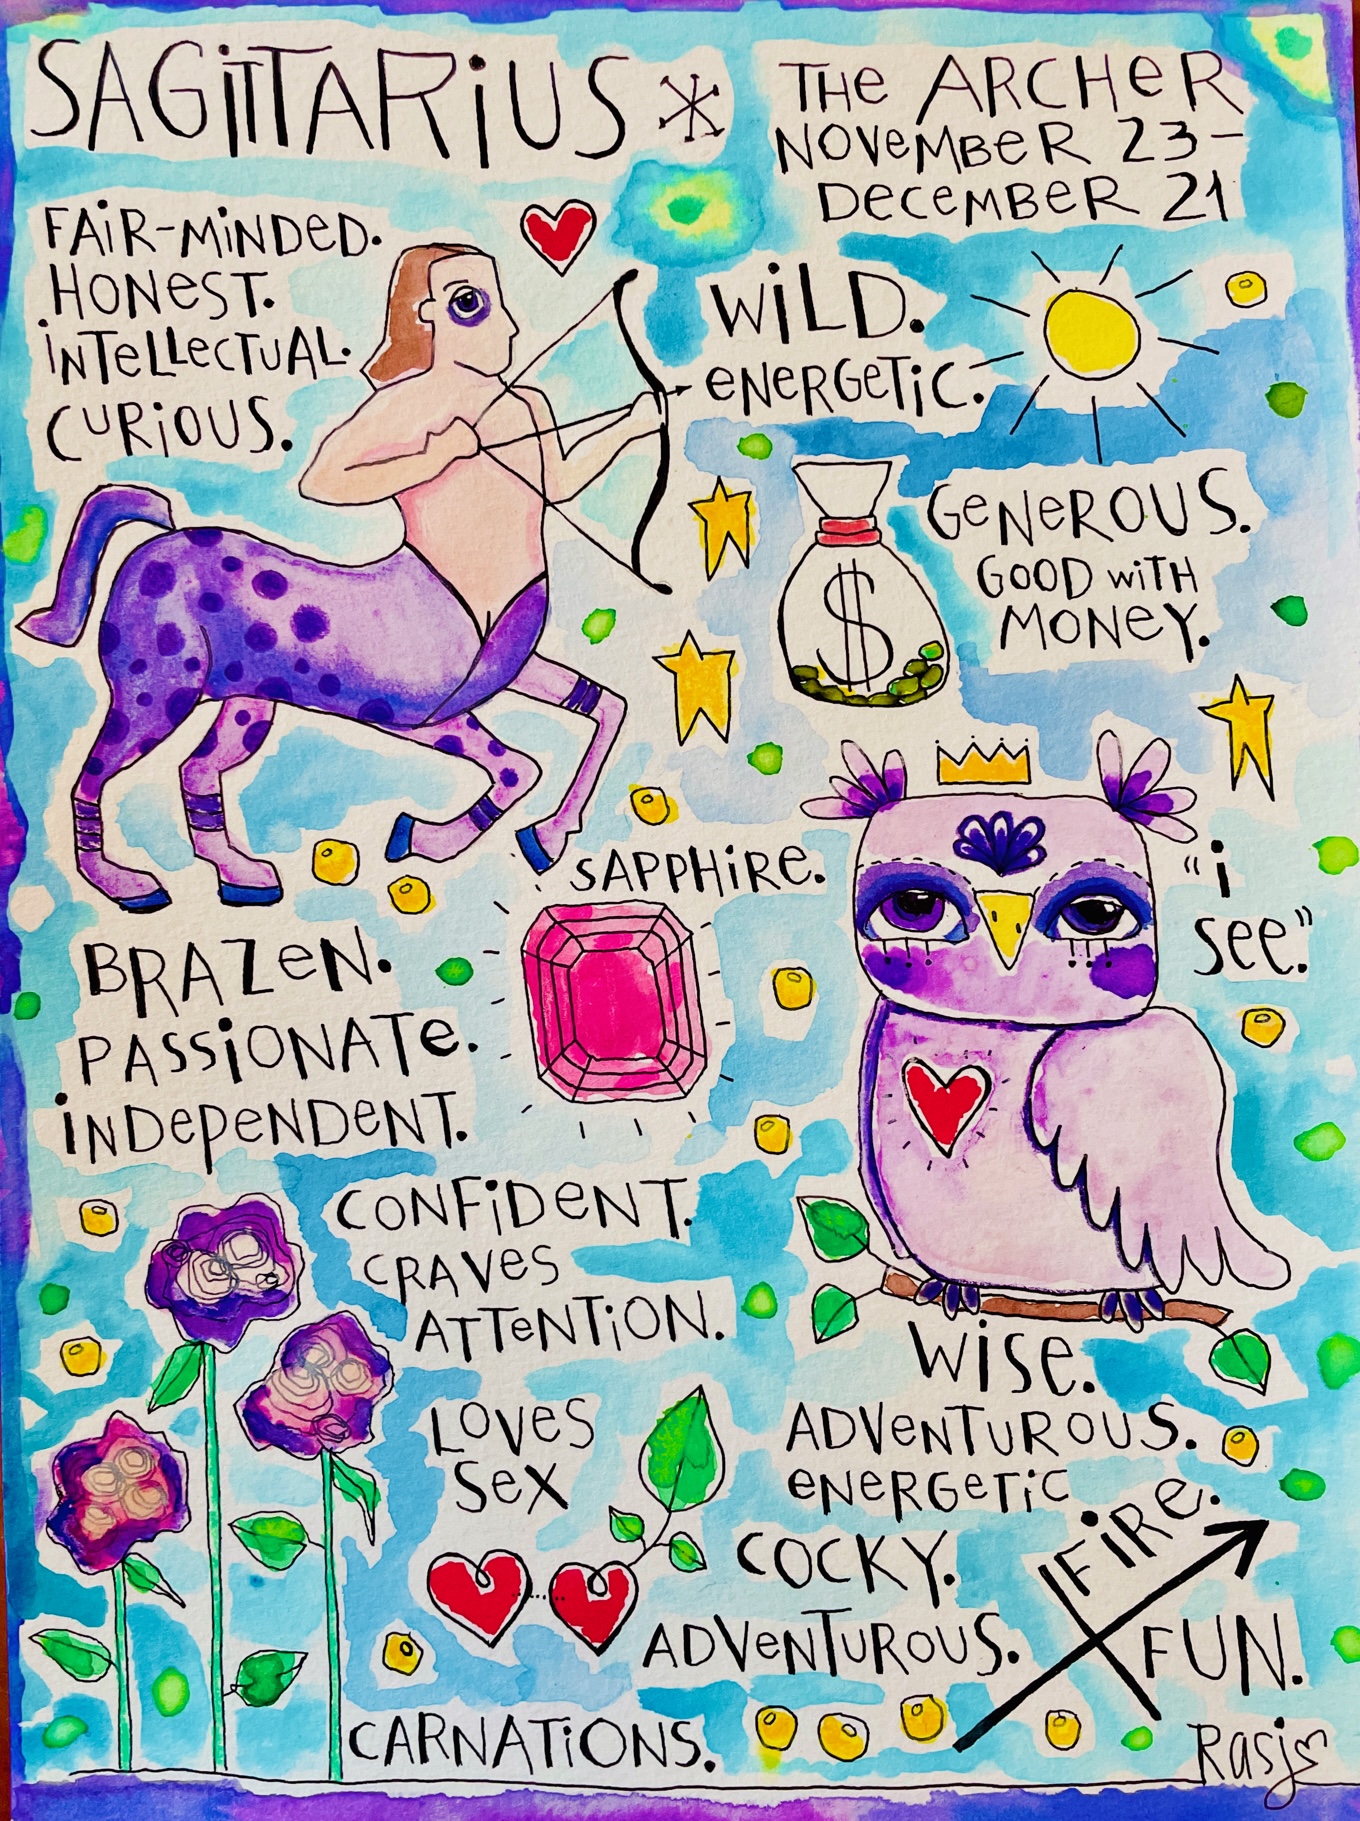 SAGITTARIUS
THE ARCHER
NOVEMBER 23-
DECEMBER 21
FAIR-MINDED.
HONEST.
INTELLECTUAL.
CURIOUS.
WILD.
ENERGETIC.
GENEROUS.
GOOD WITH
MONEY.
$
SAPPHIRE.
"I
SEE."
BRAZEN.
PASSIONATE.
INDEPENDENT.
CONFIDENT.
CRAVES
ATTENTION.
WISE.
ADVENTUROUS.
ENERGETIC
LOVES
SEX
COCKY.
ADVENTUROUS.
FIRE.
FUN.
CARNATIONS.
Rasj